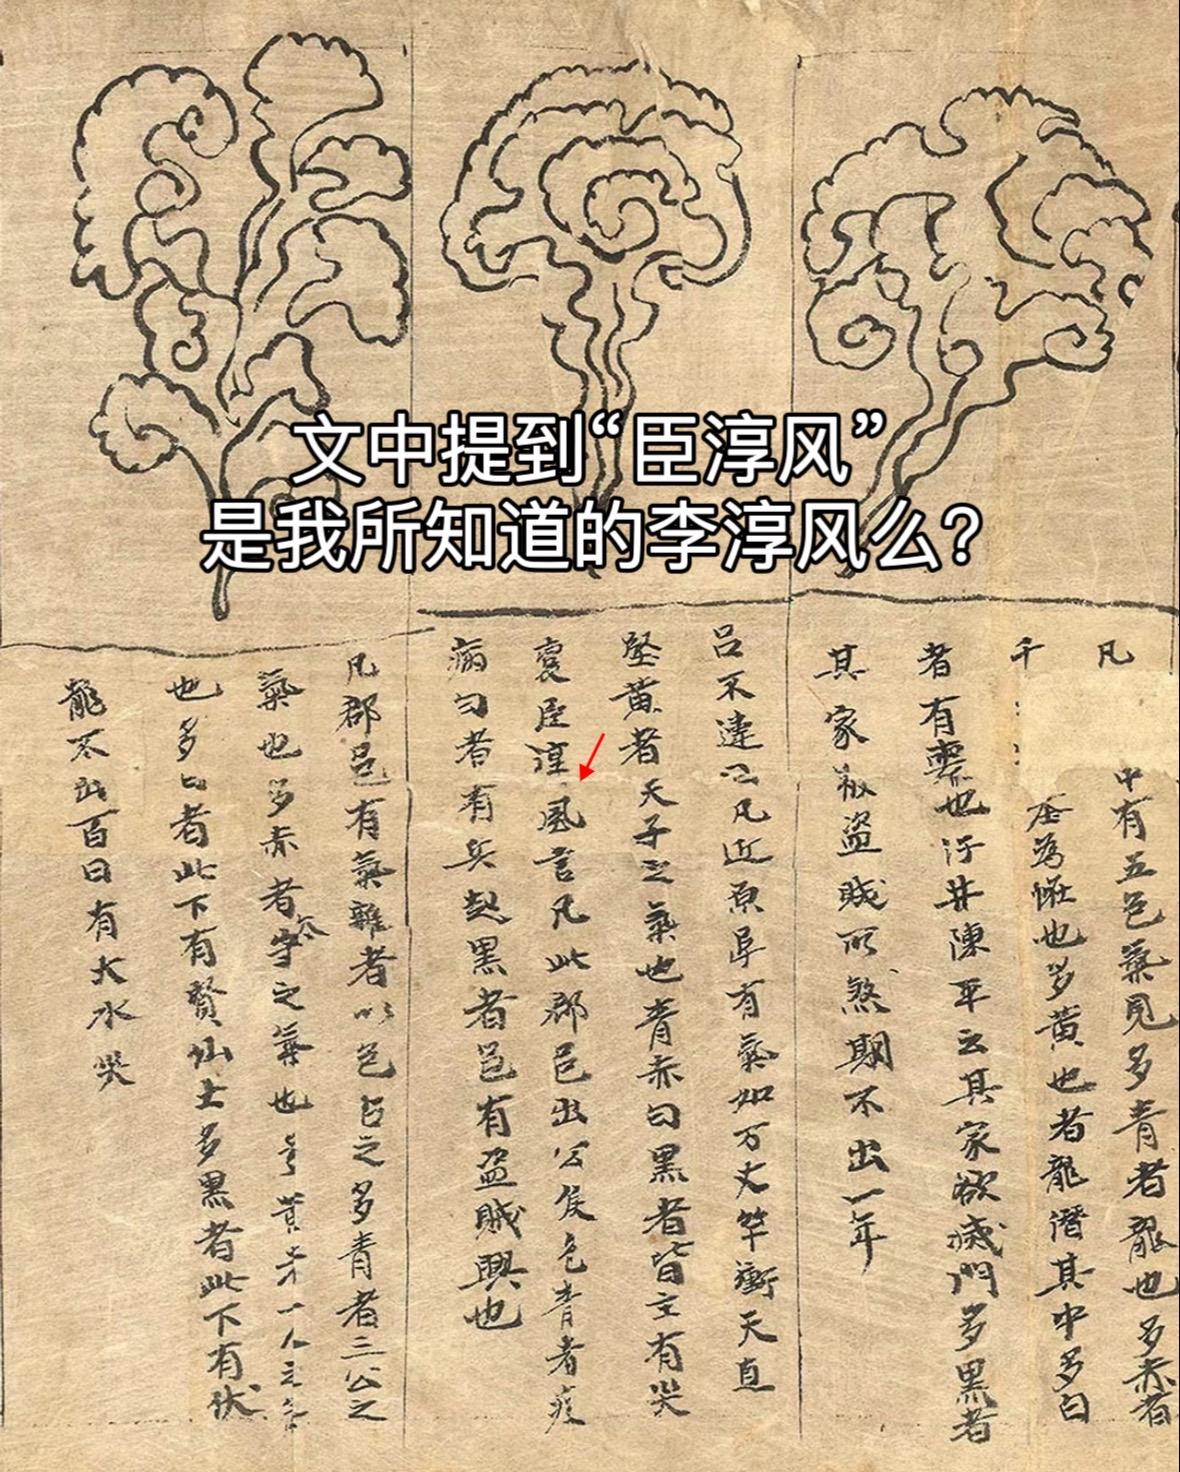 文中提到“臣淳风”
是我所知道的李淳风么？
凡
中有五色氣見多青者龍也多赤者
千
为
也多黄也者龍潛其中多白
者有喪也汙井陳平云其家欲滅門多黑者
其家被盗賊所煞期不出一年
吕不違云凡近原阜有氣如万丈竿衝天直
竪黄者天子之氣也青赤白黑者皆主有灾
臣淳風言凡此郡邑出公侯色青者疫
病白者有兵起黑者邑有盗賊興也
凡郡邑有氣雜者以色占之多青者三公之
氣也多赤者守之氣也
也多白者此下有賢仙士多黑者此下有伏
龍不出百日有大水灾